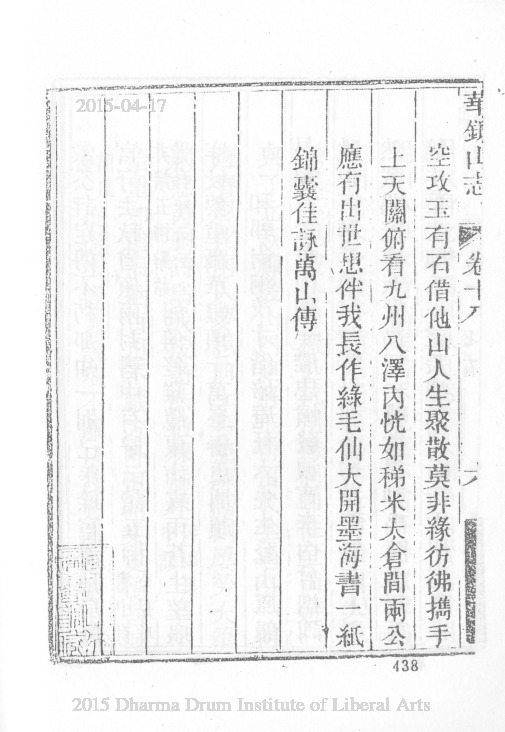 華鎣山志 卷十八
空攻玉有石借他山人生聚散莫非緣彷彿攜手
上天關俯看九州八澤內恍如稊米太倉間兩公
應有出世想伴我長作綠毛仙大開墨海書一紙
錦囊佳詠萬山傳
438
2015-04-17
2015 Dharma Drum Institute of Liberal Arts